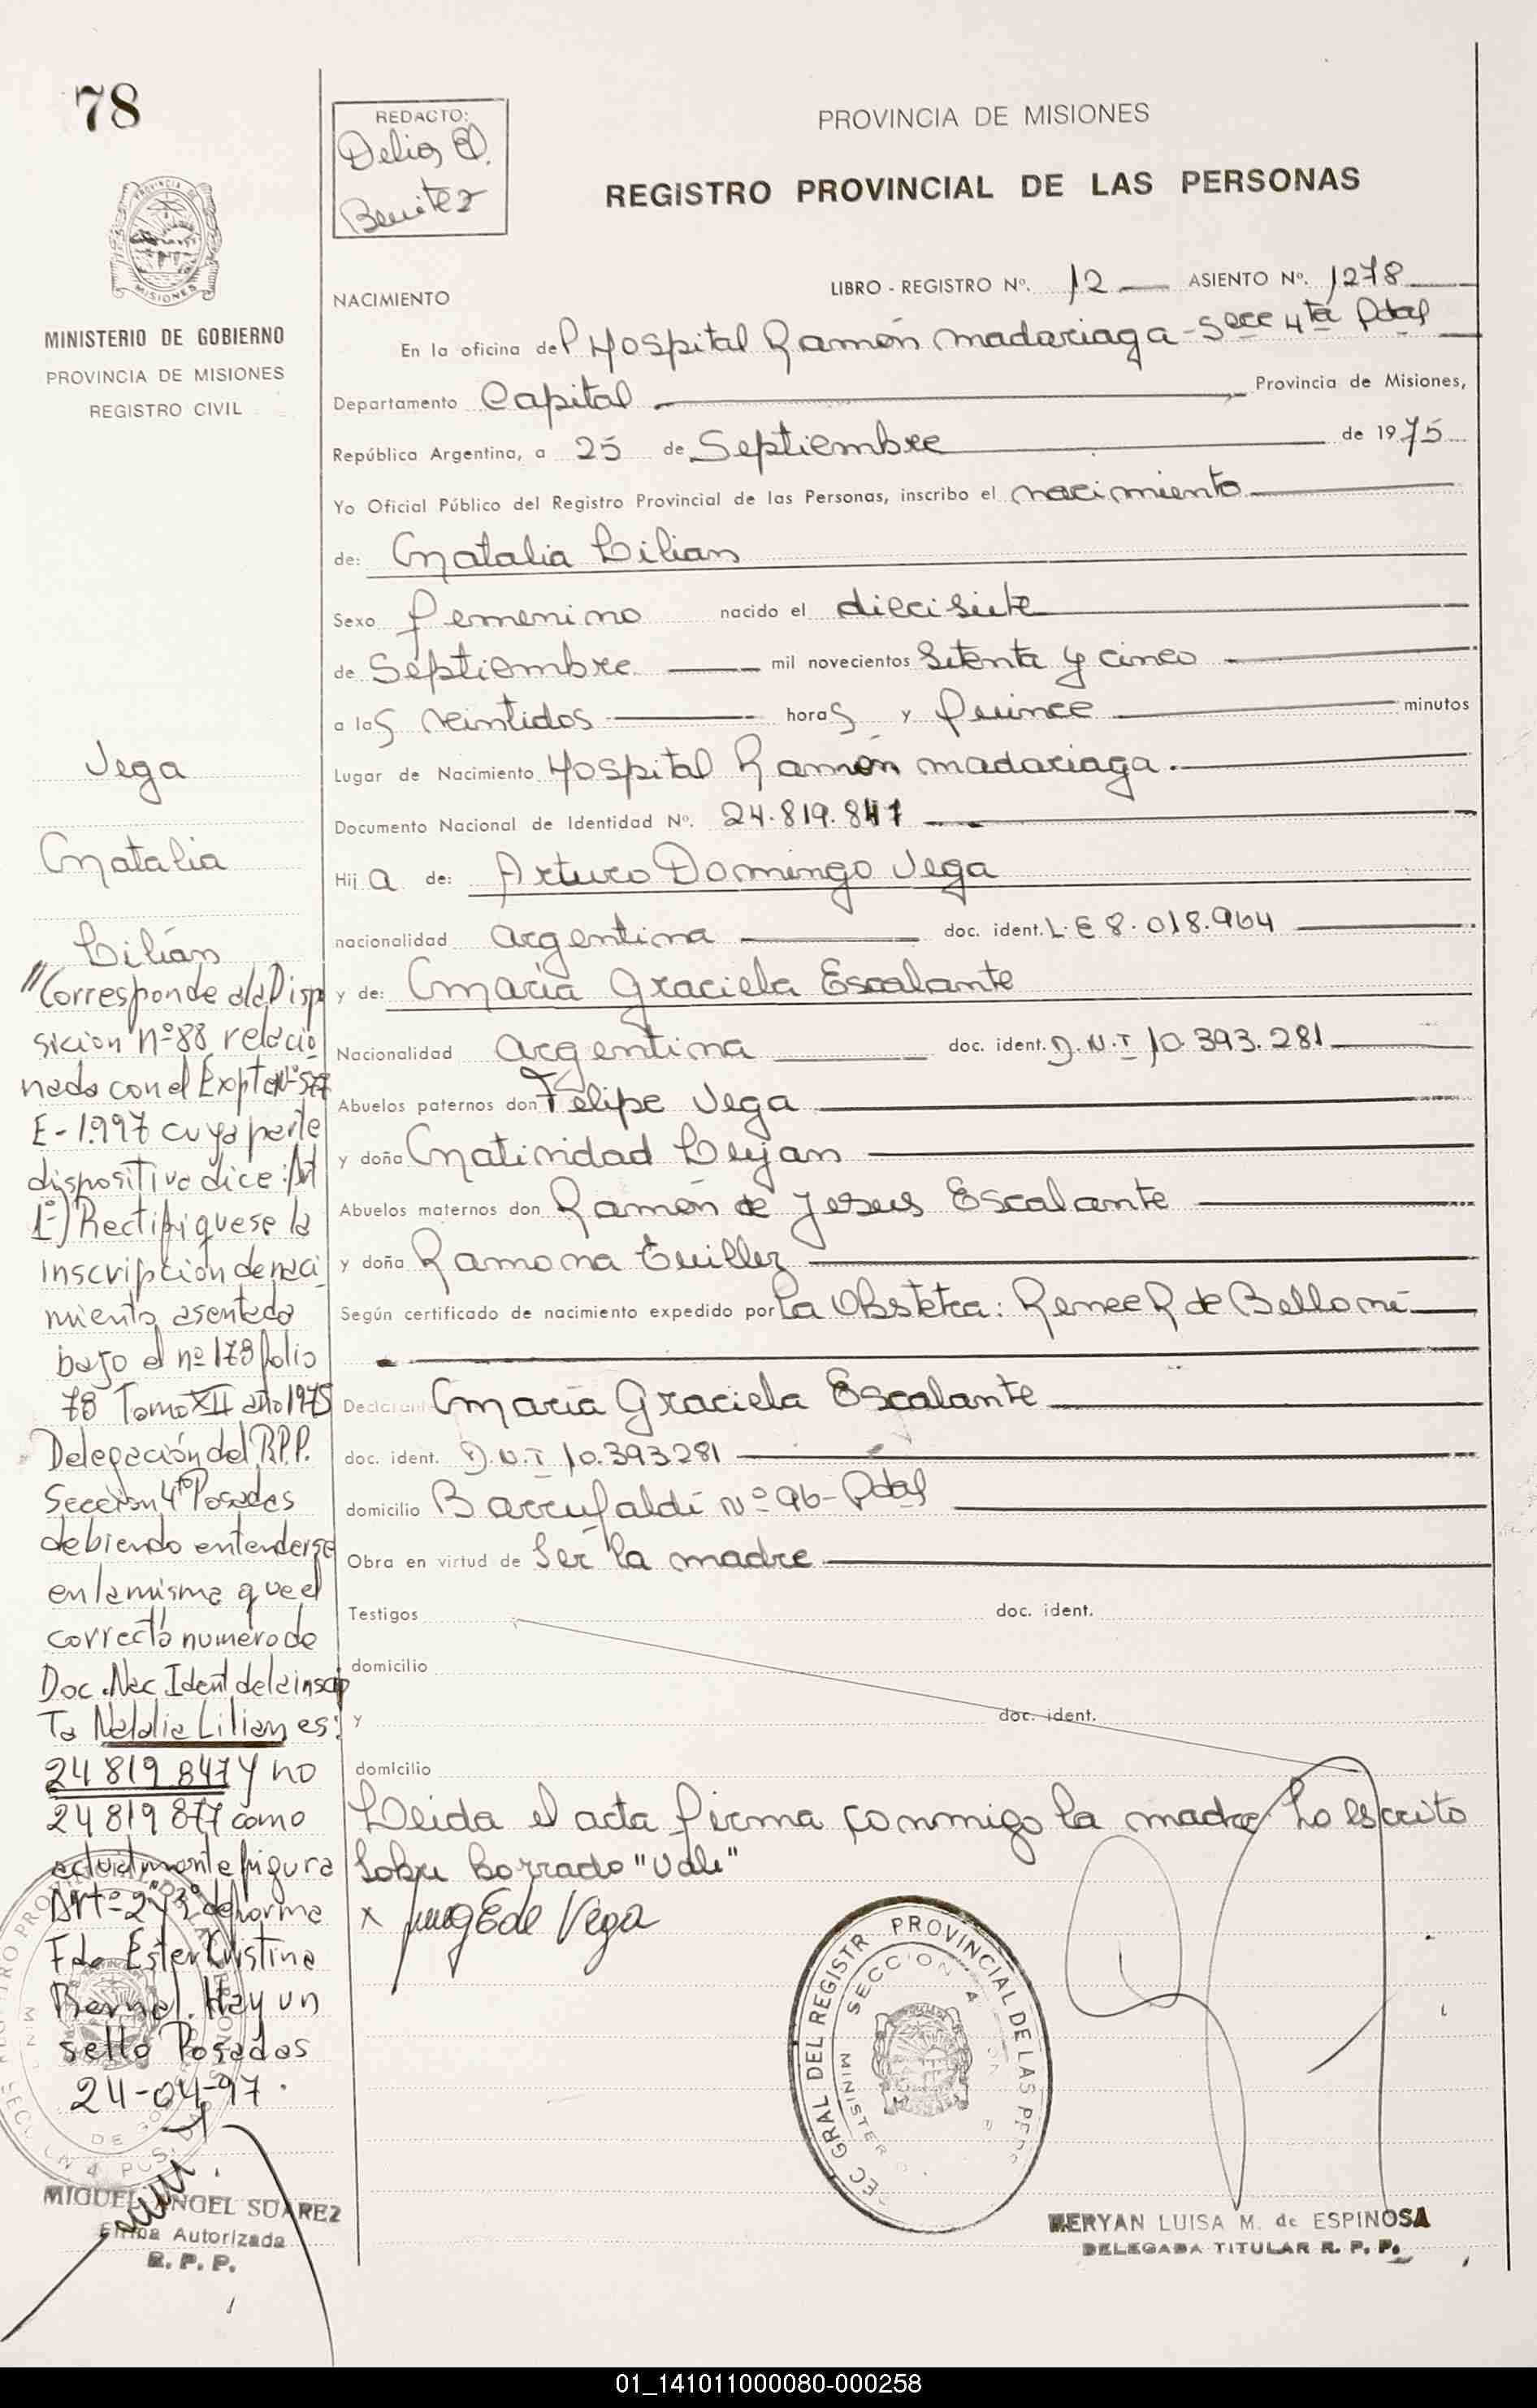 78
REDACTO:
Delia E.
Benitez
PROVINCIA DE MISIONES
REGISTRO PROVINCIAL DE LAS PERSONAS
PROVINCIA DE
MISIONES
MINISTERIO DE GOBIERNO
PROVINCIA DE MISIONES
REGISTRO CIVIL
NACIMIENTO
LIBRO - REGISTRO Nº. 12 ASIENTO Nº. 1278
En la oficina del Hospital Ramón Madariaga - Secc 4ta Pdas
Departamento Capital Provincia de Misiones,
República Argentina, a 25 de Septiembre de 1975
Yo Oficial Público del Registro Provincial de las Personas, inscribo el nacimiento
de: Natalia Lilian
Sexo femenino nacido el diecisiete
de Septiembre mil novecientos Setenta y cinco
a las veintidos horas y quince minutos
Lugar de Nacimiento Hospital Ramón Madariaga.
Documento Nacional de Identidad Nº. 24.819.847
Hija de: Arturo Domingo Vega
nacionalidad argentina doc. ident. L E 8.018.964
y de: María Graciela Escalante
Nacionalidad argentina doc. ident. D.N.I 10.393.281
Abuelos paternos don Felipe Vega
y doña Natividad Lujan
Abuelos maternos don Ramón de Jesus Escalante
y doña Ramona
Según certificado de nacimiento expedido por La Obstetra: Renee R de Belloni
Declarante María Graciela Escalante
doc. ident. D.N.I 10.393281
domicilio Barrufaldi Nº 96 - Pdas
Obra en virtud de Ser la madre
Testigos doc. ident.
domicilio
y doc. ident.
domicilio
Leida el acta firma conmigo la madre Lo escrito
Sobre borrado "Vale"
x de Vega
Vega
Natalia
Lilián
"Corresponde a la Dispo
sicion nº 88 relacio
nada con el Expte Nº 577
E-1.997 cuya parte
dispositiva dice: Art
1º) Rectifiquese la
inscripcion de naci
miento asentada
bajo el nº 178 folio
78 Tomo XII año 1975
Delegación del R.P.P.
Sección 4ta Posadas
debiendo entenderse
en la misma que el
correcto numero de
Doc. Nac Ident de la inscrip
Ta Natalia Lilian es:
24 819 847 y no
24 819 877 como
actualmente figura
Artº 2º y 3º de forma
Fdo Ester Cristina
Bernal. Hay un
sello Posadas
24-04-97.
MIGUEL ANGEL SUAREZ
Firma Autorizada
R. P. P.
GRAL DEL REGISTR PROVINCIAL DE LAS PERS
SECCION 4
MINISTER
MERYAN LUISA M. de ESPINOSA
DELEGADA TITULAR R. P. P.
01_141011000080-000258